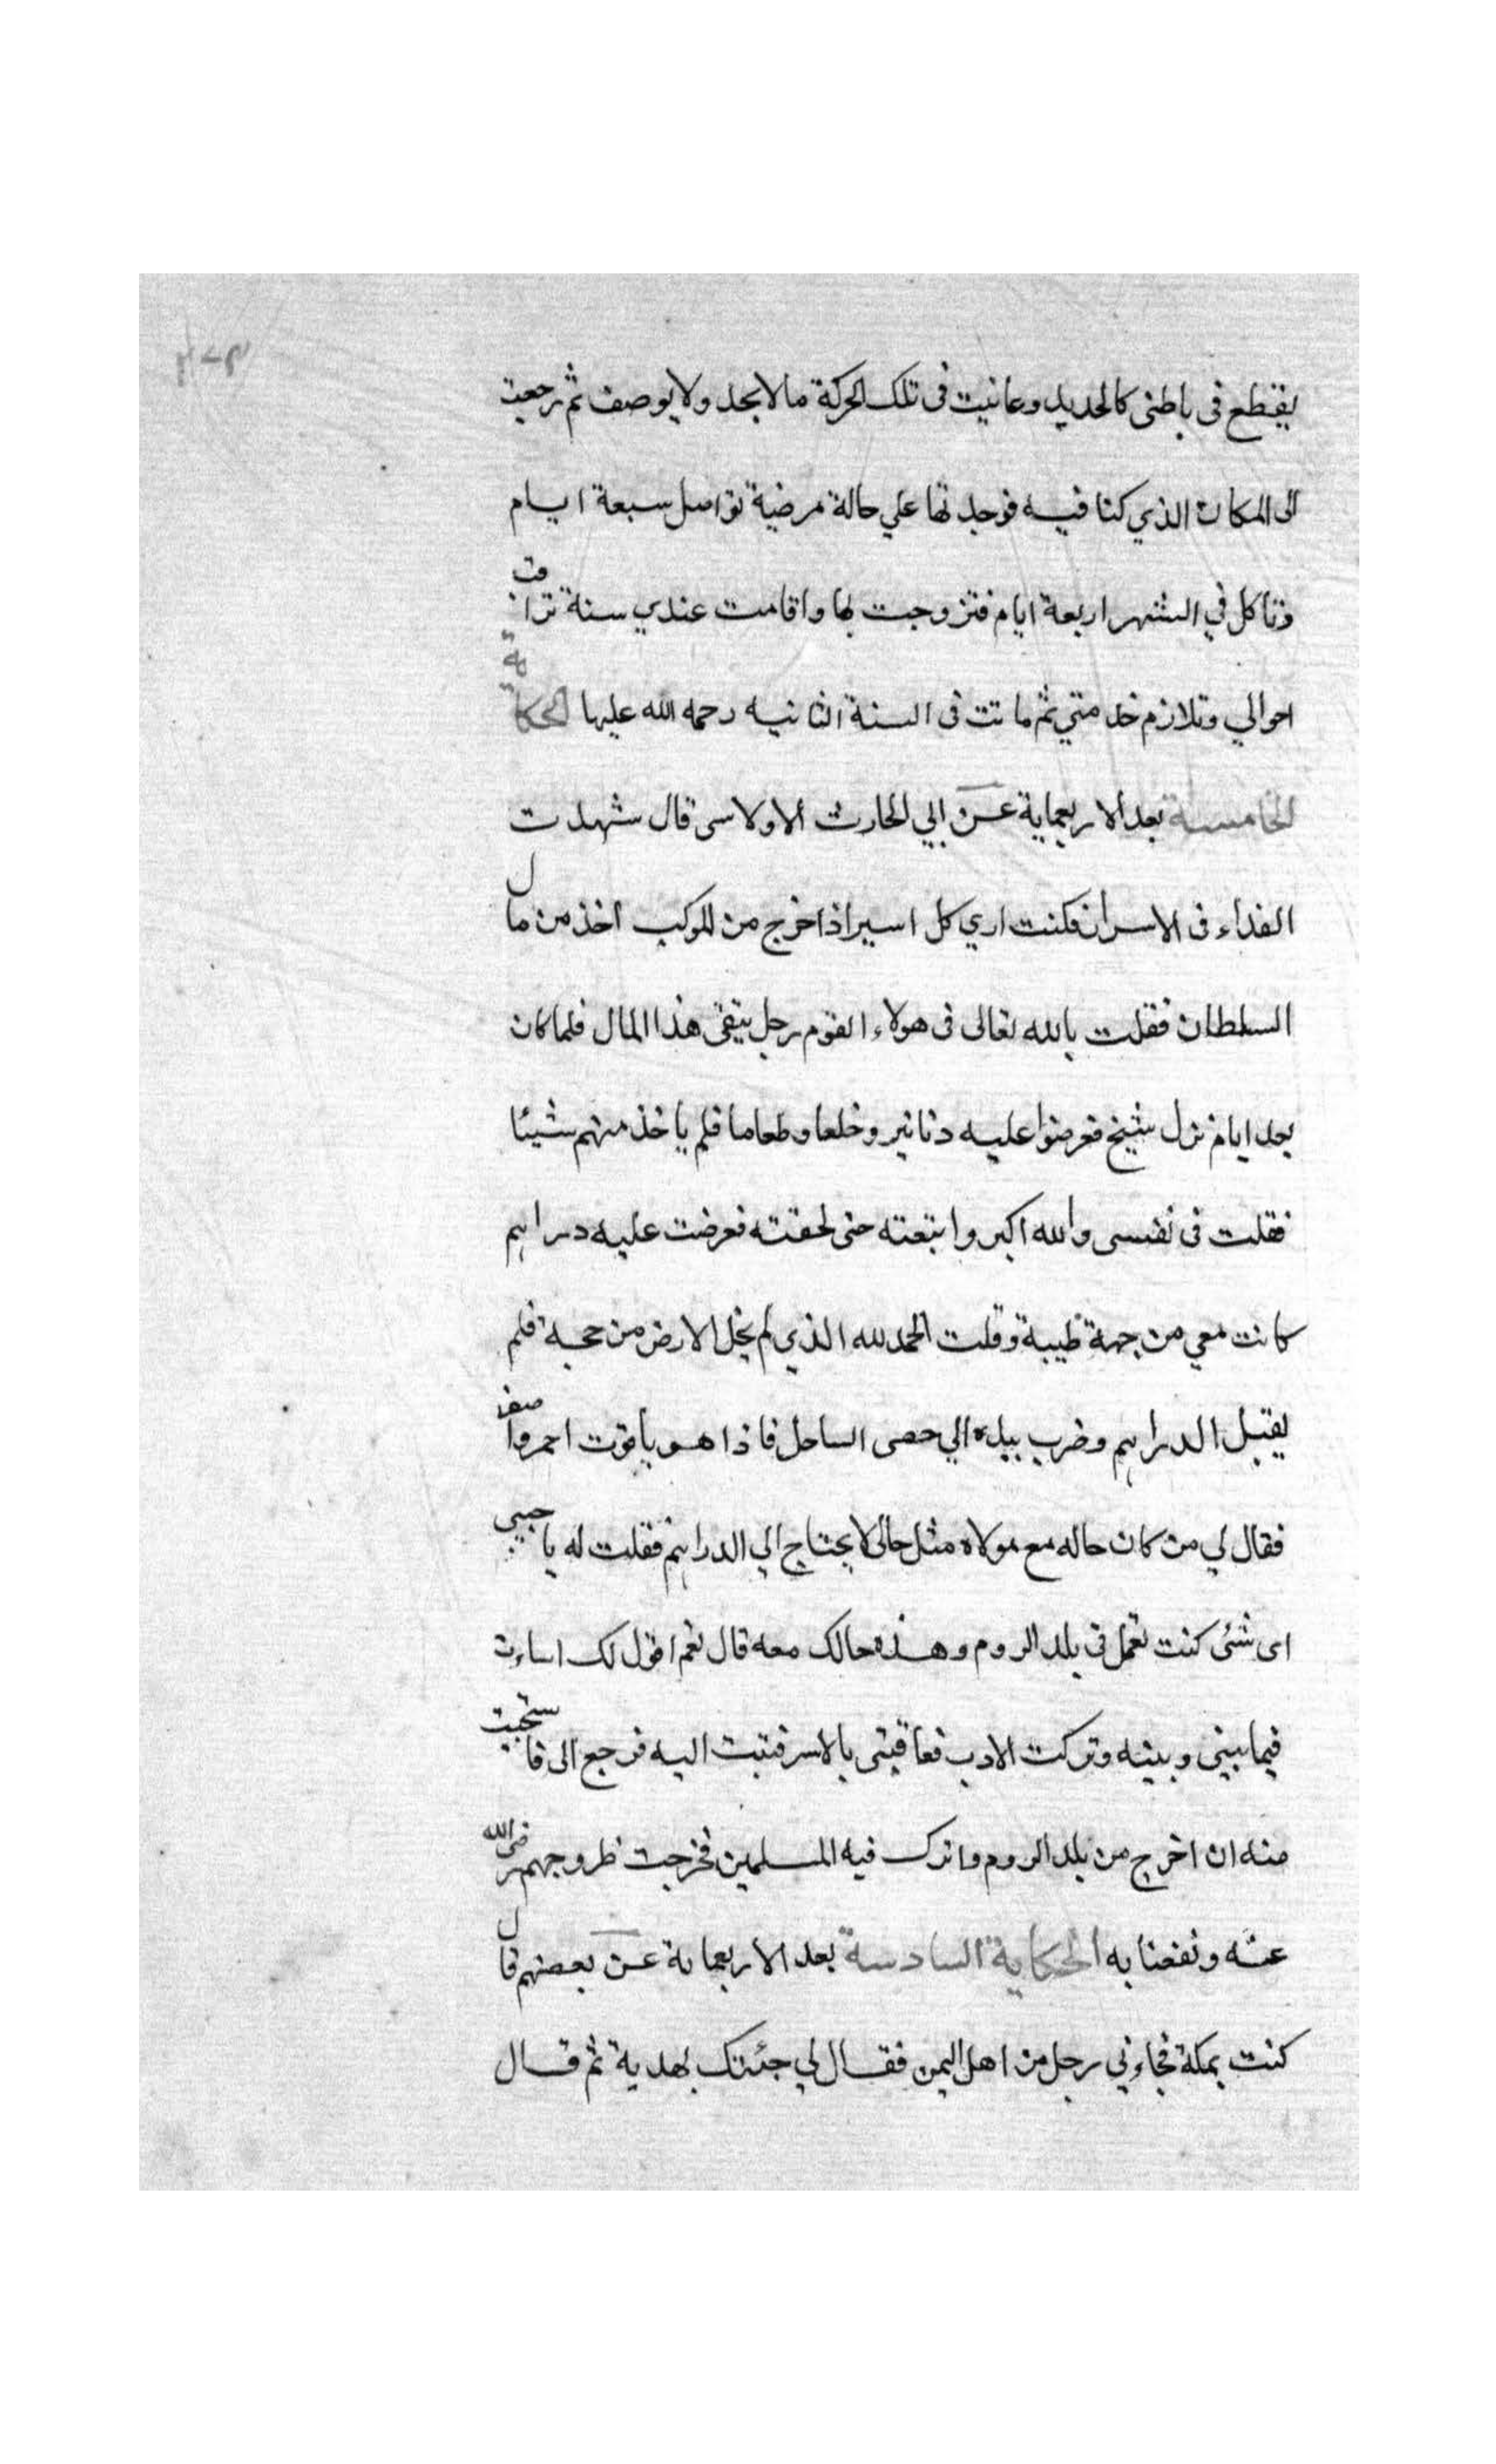 يقطع فى باطنى كالحديد وعانيت فى تلك الحركة ما لا يحد ولا يوصف ثم رجعت
الى المكان الذي كنا فيه فوجدتها علي حالة مرضية تواصل سبعة ايام
وتاكل في الشهر اربعة ايام فتزوجت بها واقامت عندي سنة تراقب
احوالي وتلازم خدمتي ثم ماتت فى السنة الثانيه رحمه الله عليها الحكاية
الخامسة بعد الاربعماية عن ابي الحارث الاولاسى قال شهدت
الفداء فى الاسران فكنت اري كل اسير اذا خرج من المركب اخذ من مال
السلطان فقلت بالله تعالى فى هولاء القوم رجل يتقى هذا المال فلما كان
بعد ايام نزل شيخ فعرضوا عليه دنانير وخلعا وطعاما فلم ياخذ منهم شيئا
فقلت فى نفسى والله اكبر واتبعته حتى لحقته فعرضت عليه دراهم
كانت معي من جهة طيبة وقلت الحمد لله الذي لم يخل الارض من حجة فلم
يقبل الدراهم وضرب بيده الي حصى الساحل فاذا هو ياقوت احمر واصفر
فقال لي من كان حاله مع مولاه مثل حالى لا يحتاج الي الدراهم فقلت له يا حبيبى
اى شئى كنت تعمل فى بلد الروم وهذه حالك معه قال نعم اقول لك اساءت
فيما بينى وبينه وتركت الادب فعاقبنى بالاسر فتبت اليه فرجع الى فاستحييت
منه ان اخرج من بلد الروم واترك فيه المسلمين فخرجت خروجهم رضى الله
عنه ونفعنا به الحكاية السادسة بعد الاربعماية عن بعضهم قال
كنت بمكة فجاءني رجل من اهل اليمن فقال لي جئتك بهدية ثم قال